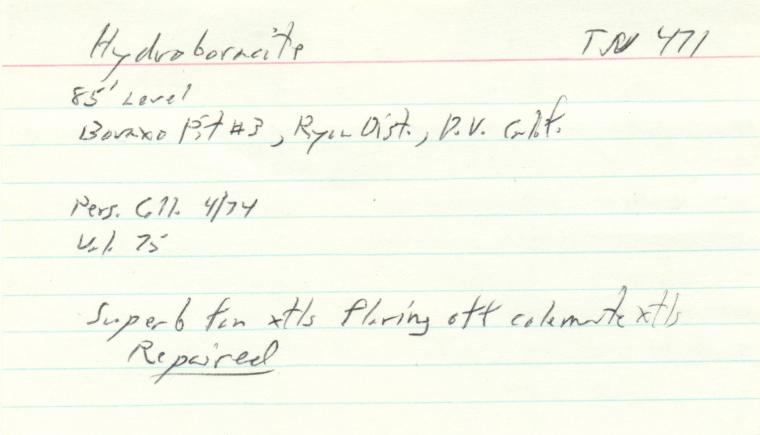 Hydroboracite TN 471
85' Level
Boraxo Pit #3, Ryan Dist., D.V. Calif.
Pers. Coll. 4/74
Val. 75
Superb fan xtls flaring off colemanite xtls
Repaired